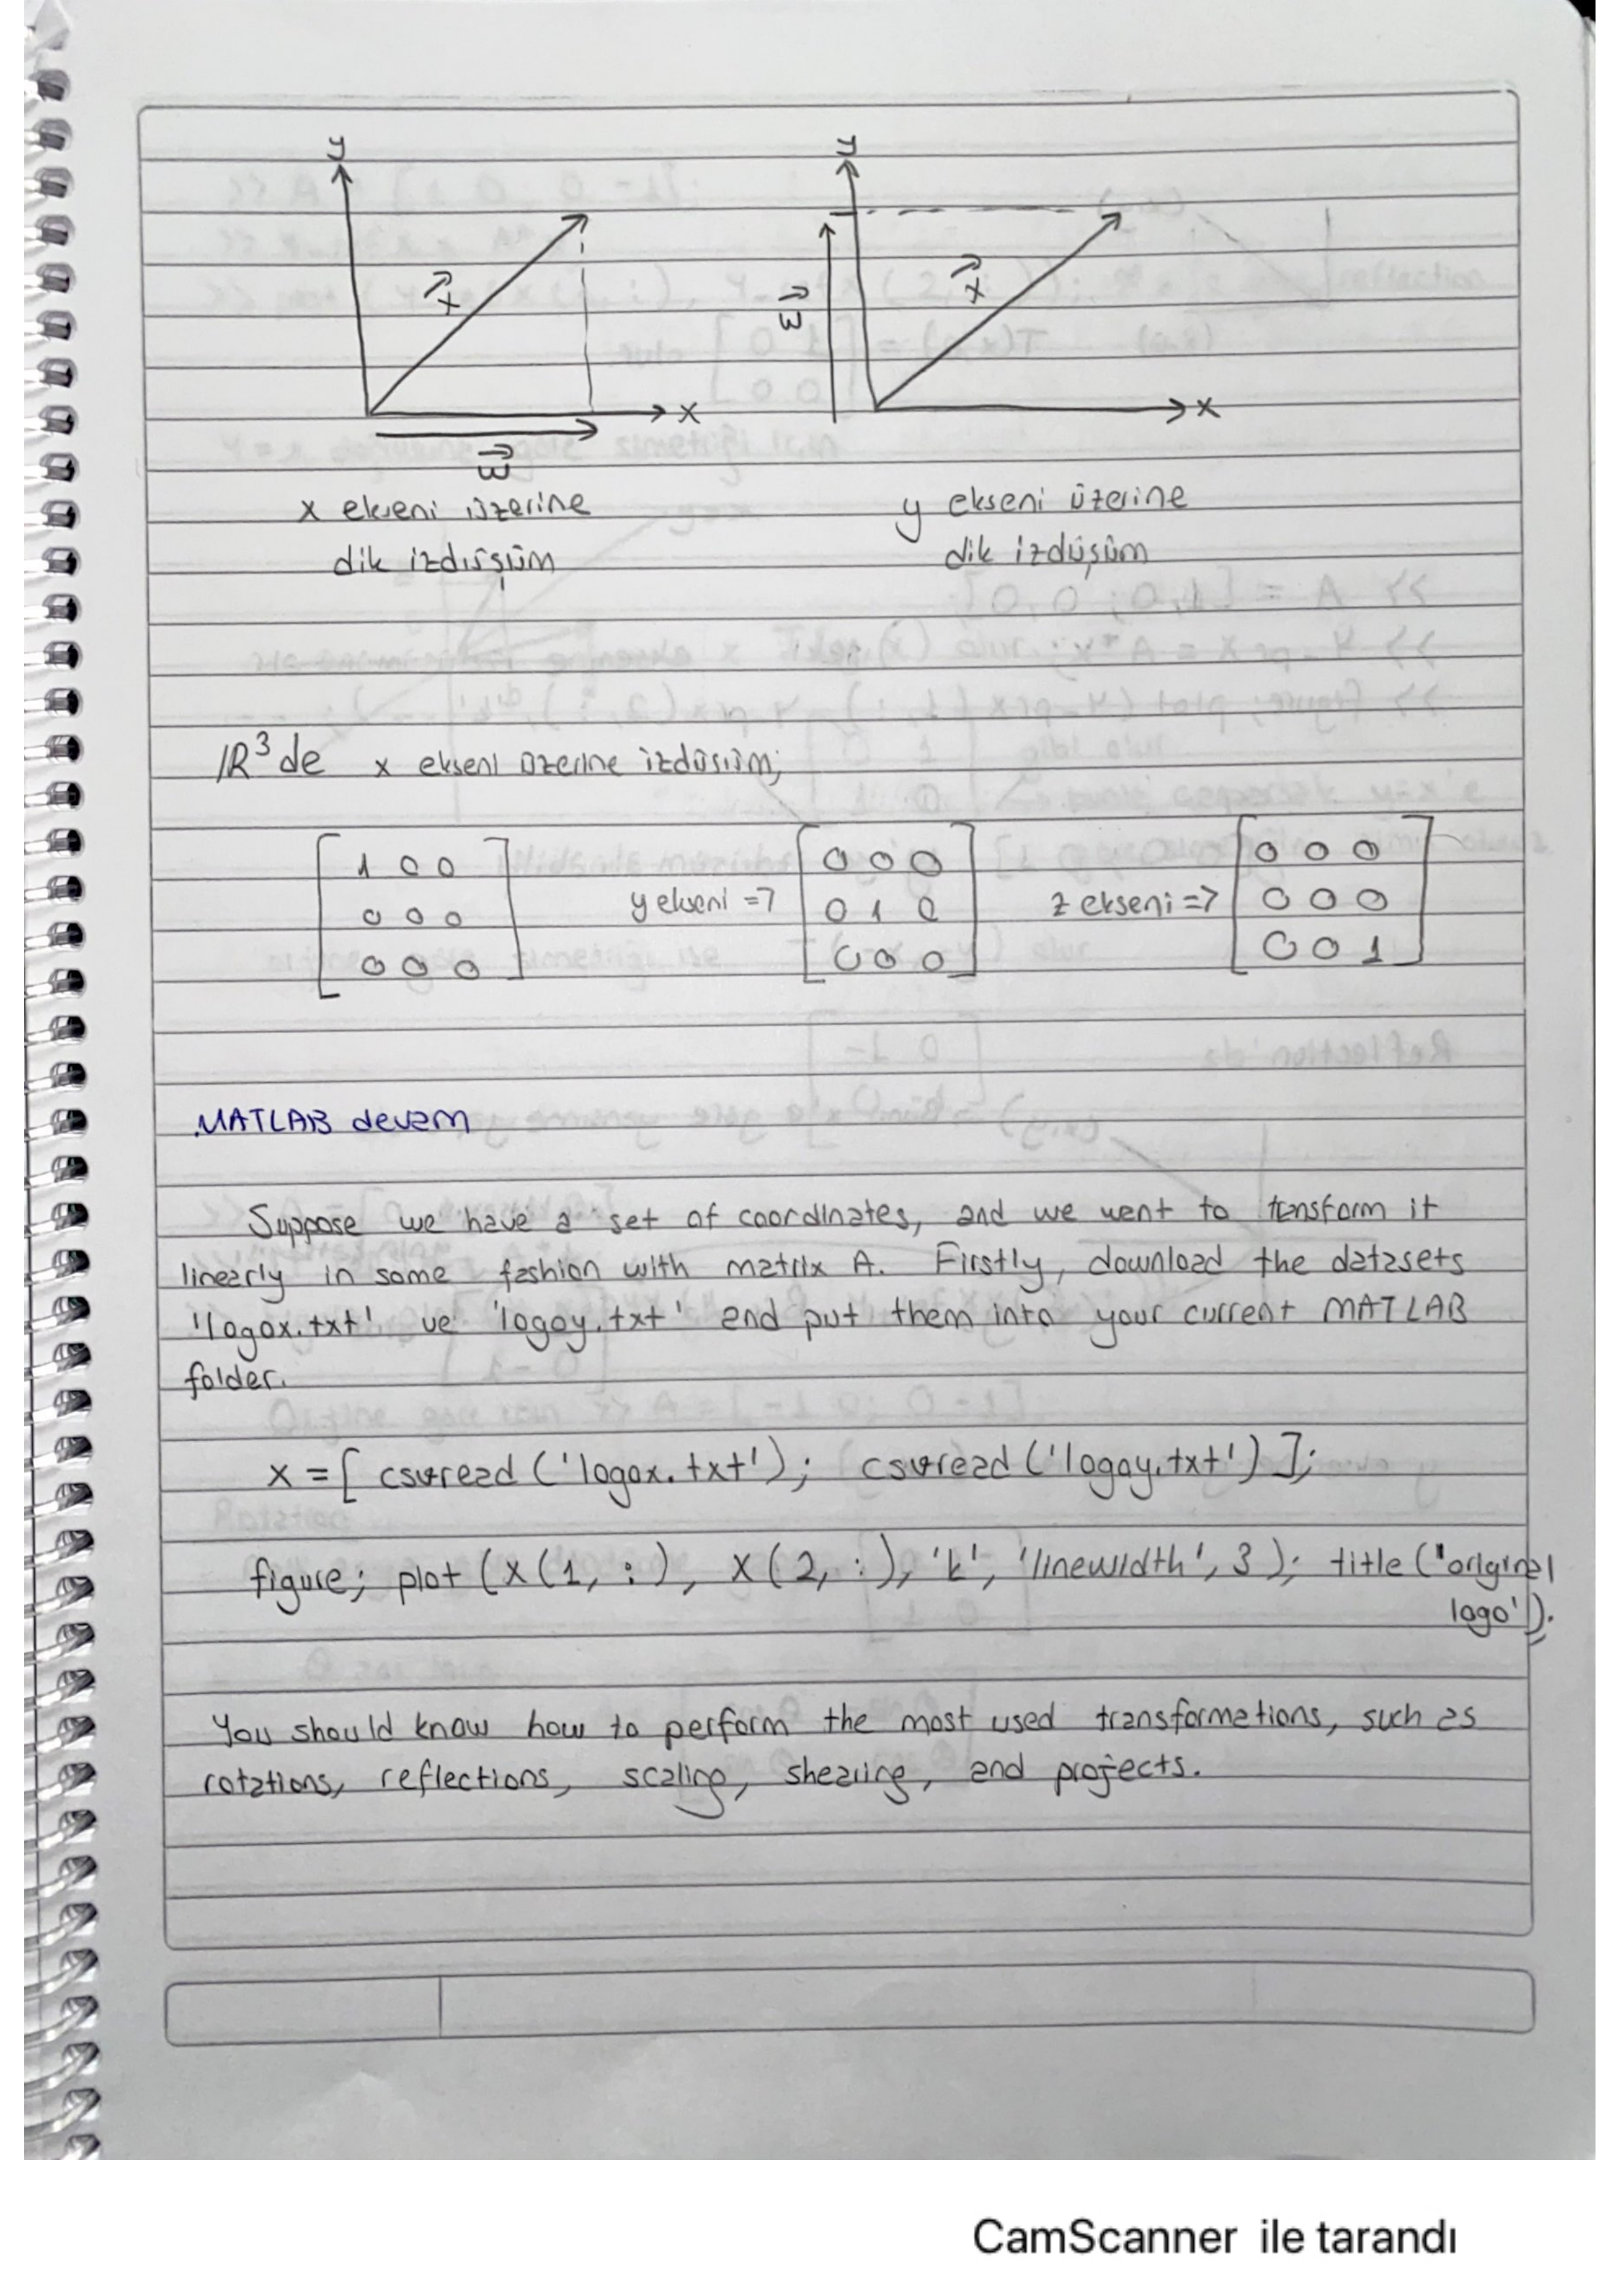 y
y
x⃗
x⃗
w⃗
x
x
w⃗
x ekseni üzerine
dik izdüşüm
y ekseni üzerine
dik izdüşüm
IR³ de x ekseni üzerine izdüşüm;
1 0 0
0 0 0
0 0 0
y ekseni =>
0 0 0
0 1 0
0 0 0
z ekseni =>
0 0 0
0 0 0
0 0 1
MATLAB devam
Suppose we have a set of coordinates, and we went to transform it
linearly in some fashion with matrix A. Firstly, download the datasets
'logox.txt' ve 'logoy.txt' and put them into your current MATLAB
folder.
x = [ csvread ('logox.txt'); csvread ('logoy.txt') ];
figure; plot (x(1, :), x(2, :), 'k', 'linewidth', 3); title ('original
logo').
You should know how to perform the most used transformations, such as
rotations, reflections, scaling, shearing, and projects.
CamScanner ile tarandı